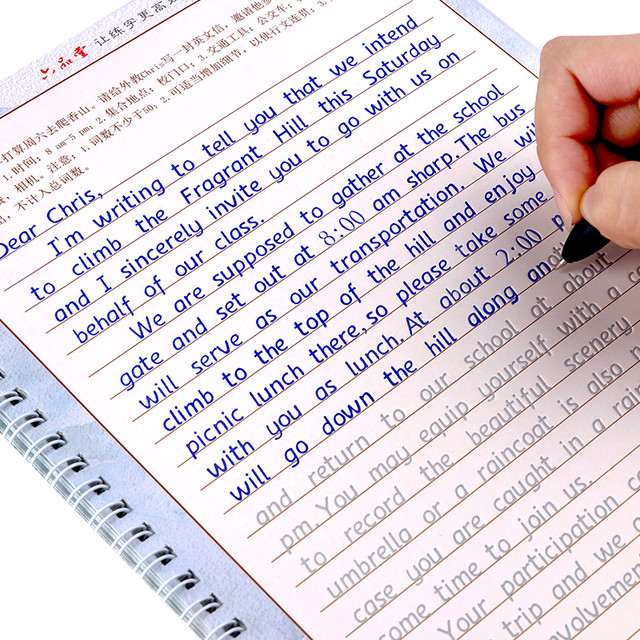 六品堂 让练字更高
打算周六去爬香山。请给外教Chris写一封英文信，邀请他
1.时间：8 am-5 pm；2.集合地点：校门口；3.交通工具：公交车；
相机。注意：1.词数不少于50；2.可适当增加细节，以使行文连贯；3.
不计入总词数。
Dear Chris,
I'm writing to tell you that we intend
to climb the Fragrant Hill this Saturday
and I sincerely invite you to go with us on
behalf of our class.
We are supposed to gather at the school
gate and set out at 8:00 am sharp. The bus
will serve as our transportation. We will
climb to the top of the hill and enjoy
picnic lunch there, so please take some
with you as lunch. At about 2:00 p
will go down the hill along ano
and return to our school at about
pm. You may equip yourself with a c
to record the beautiful scenery
umbrella or a raincoat is also n
case you are caught in a rain
some time to join us.
Your participation c
trip and we
volvemen